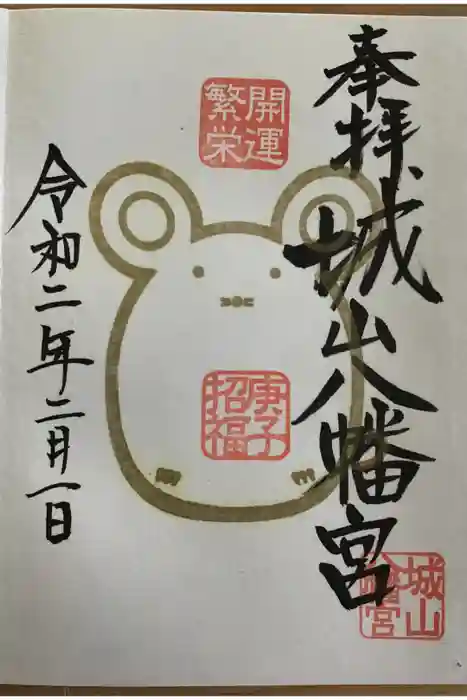 奉拝、城山八幡宮
開運
繁栄
庚子
招福
令和二年二月一日
城山
八幡宮